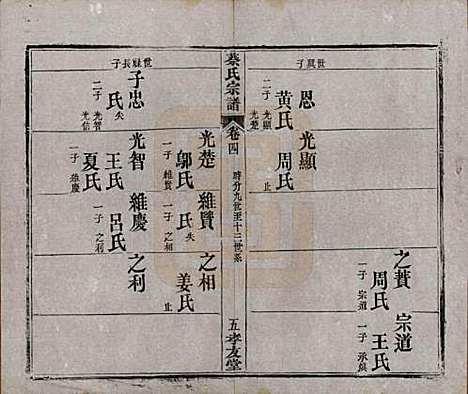 世晨子
恩
黄氏
二子
光顯
光楚
光顯
周氏
止
之賛
周氏
一子
宗道
宗道
王氏
一子
承㒷
蔡氏宗譜
卷四
時分九世至十三世系
五
孝友堂
世 長子
子忠
氏失
二子
光智
光楚
維賢
鄔氏
一子
維賢
氏失
一子
之相
之相
姜氏
止
光智
王氏
夏氏
一子
維慶
維慶
呂氏
一子
之利
之利